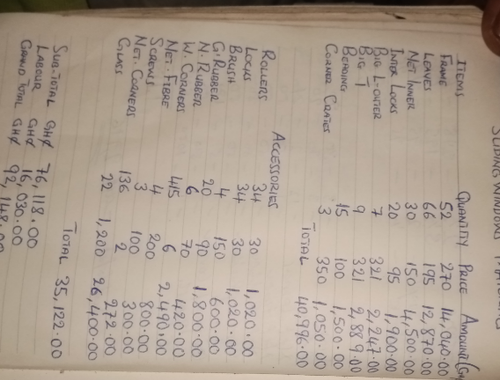 SLIDING WINDOW
ITEMS QUANTITY PRICE AMOUNT(GH
FRAME 52 270 14,040.00
LEAVES 66 195 12,870.00
NET INNER 30 150 4,500.00
INTER LOCKS 20 95 1,900.00
BIG L-OUTER 7 321 2,247.00
BIG T 9 321 2,889.00
BENDING 15 100 1,500.00
CORNER 3 350 1,050.00
TOTAL 40,996.00
ACCESSORIES
ROLLERS 34 30 1,020.00
LOCKS 34 30 1,020.00
BRUSH 4 150 600.00
G. RUBBER 20 90 1,800.00
N. RUBBER 6 70 420.00
W. CORNERS 415 6 2,490.00
NET-FIBRE 4 200 800.00
SCREWS 3 100 300.00
NET. CORNERS 136 2 272.00
GLASS 22 1,200 26,400.00
TOTAL 35,122.00
SUB-TOTAL GH₵ 76,118.00
LABOUR GH₵ 16,030.00
GRAND TOTAL GH₵ 92,148.00